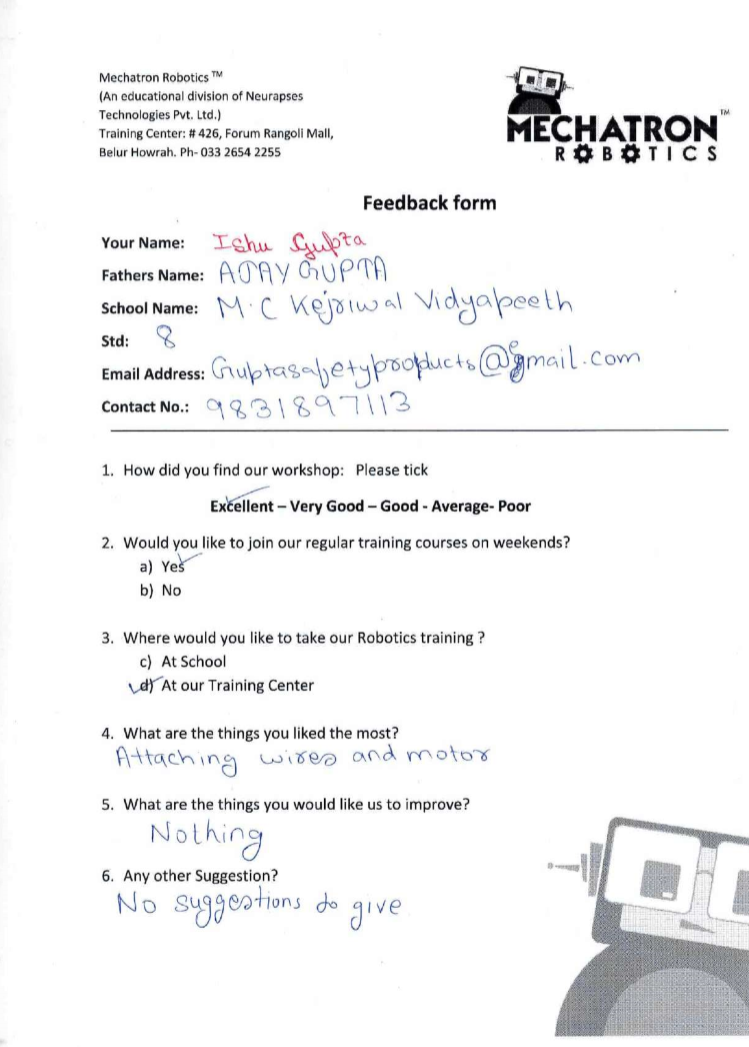 Mechatron Robotics ™
(An educational division of Neurapses
Technologies Pvt. Ltd.)
Training Center: # 426, Forum Rangoli Mall,
Belur Howrah. Ph- 033 2654 2255
MECHATRON™
ROBOTICS
Feedback form
Your Name: Ishu Gupta
Fathers Name: AJAY GUPTA
School Name: M.C Kejriwal Vidyapeeth
Std: 8
Email Address: Guptasafetyproducts@gmail.com
Contact No.: 9831897113
1. How did you find our workshop: Please tick
Excellent – Very Good – Good - Average- Poor
2. Would you like to join our regular training courses on weekends?
a) Yes
b) No
3. Where would you like to take our Robotics training ?
c) At School
d) At our Training Center
4. What are the things you liked the most?
Attaching wires and motor
5. What are the things you would like us to improve?
Nothing
6. Any other Suggestion?
No suggestions to give